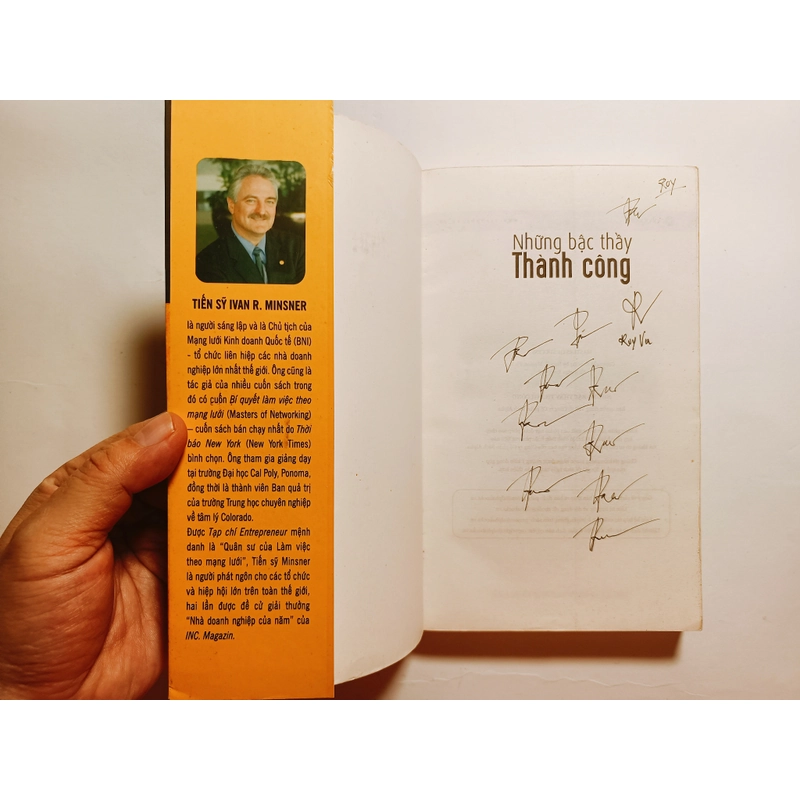 TIẾN SỸ IVAN R. MINSNER
là người sáng lập và là Chủ tịch của
Mạng lưới Kinh doanh Quốc tế (BNI)
- tổ chức liên hiệp các nhà doanh
nghiệp lớn nhất thế giới. Ông cũng là
tác giả của nhiều cuốn sách trong
đó có cuốn Bí quyết làm việc theo
mạng lưới (Masters of Networking)
– cuốn sách bán chạy nhất do Thời
báo New York (New York Times)
bình chọn. Ông tham gia giảng dạy
tại trường Đại học Cal Poly, Ponoma,
đồng thời là thành viên Ban quả trị
của trường Trung học chuyên nghiệp
về tâm lý Colorado.
Được Tạp chí Entrepreneur mệnh
danh là "Quân sư của Làm việc
theo mạng lưới", Tiến sỹ Minsner
là người phát ngôn cho các tổ chức
và hiệp hội lớn trên toàn thế giới,
hai lần được đề cử giải thưởng
"Nhà doanh nghiệp của năm" của
INC. Magazin.
Roy
Những bậc thầy
Thành công
Roy Vu